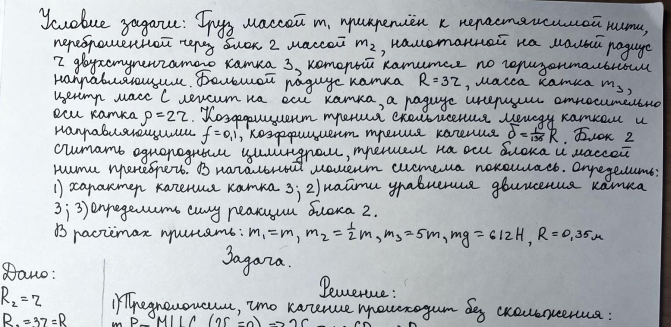 Условие задачи: Груз массой m₁ прикреплён к нерастяжимой нити,
переброшенной через блок 2 массой m₂, намотанной на малый радиус
r двухступенчатого катка 3, который катится по горизонтальным
направляющим. Большой радиус катка R=3r, масса катка m₃,
центр масс C лежит на оси катка, а радиус инерции относительно
оси катка ρ=2r. Коэффициент трения скольжения между катком и
направляющими f=0,1, коэффициент трения качения δ= R. Блок 2
считать однородным цилиндром, трением на оси блока и массой
нити пренебречь. В начальный момент система покоилась. Определить:
1) характер качения катка 3; 2) найти уравнения движения катка
3; 3) определить силу реакции блока 2.
В расчётах принять: m₁=m, m₂=½m, m₃=5m, mg=612Н, R=0,35м
Задача.
Дано:
R₂=r
R₃=3r=R
Решение:
1) Предположим, что качение происходит без скольжения: